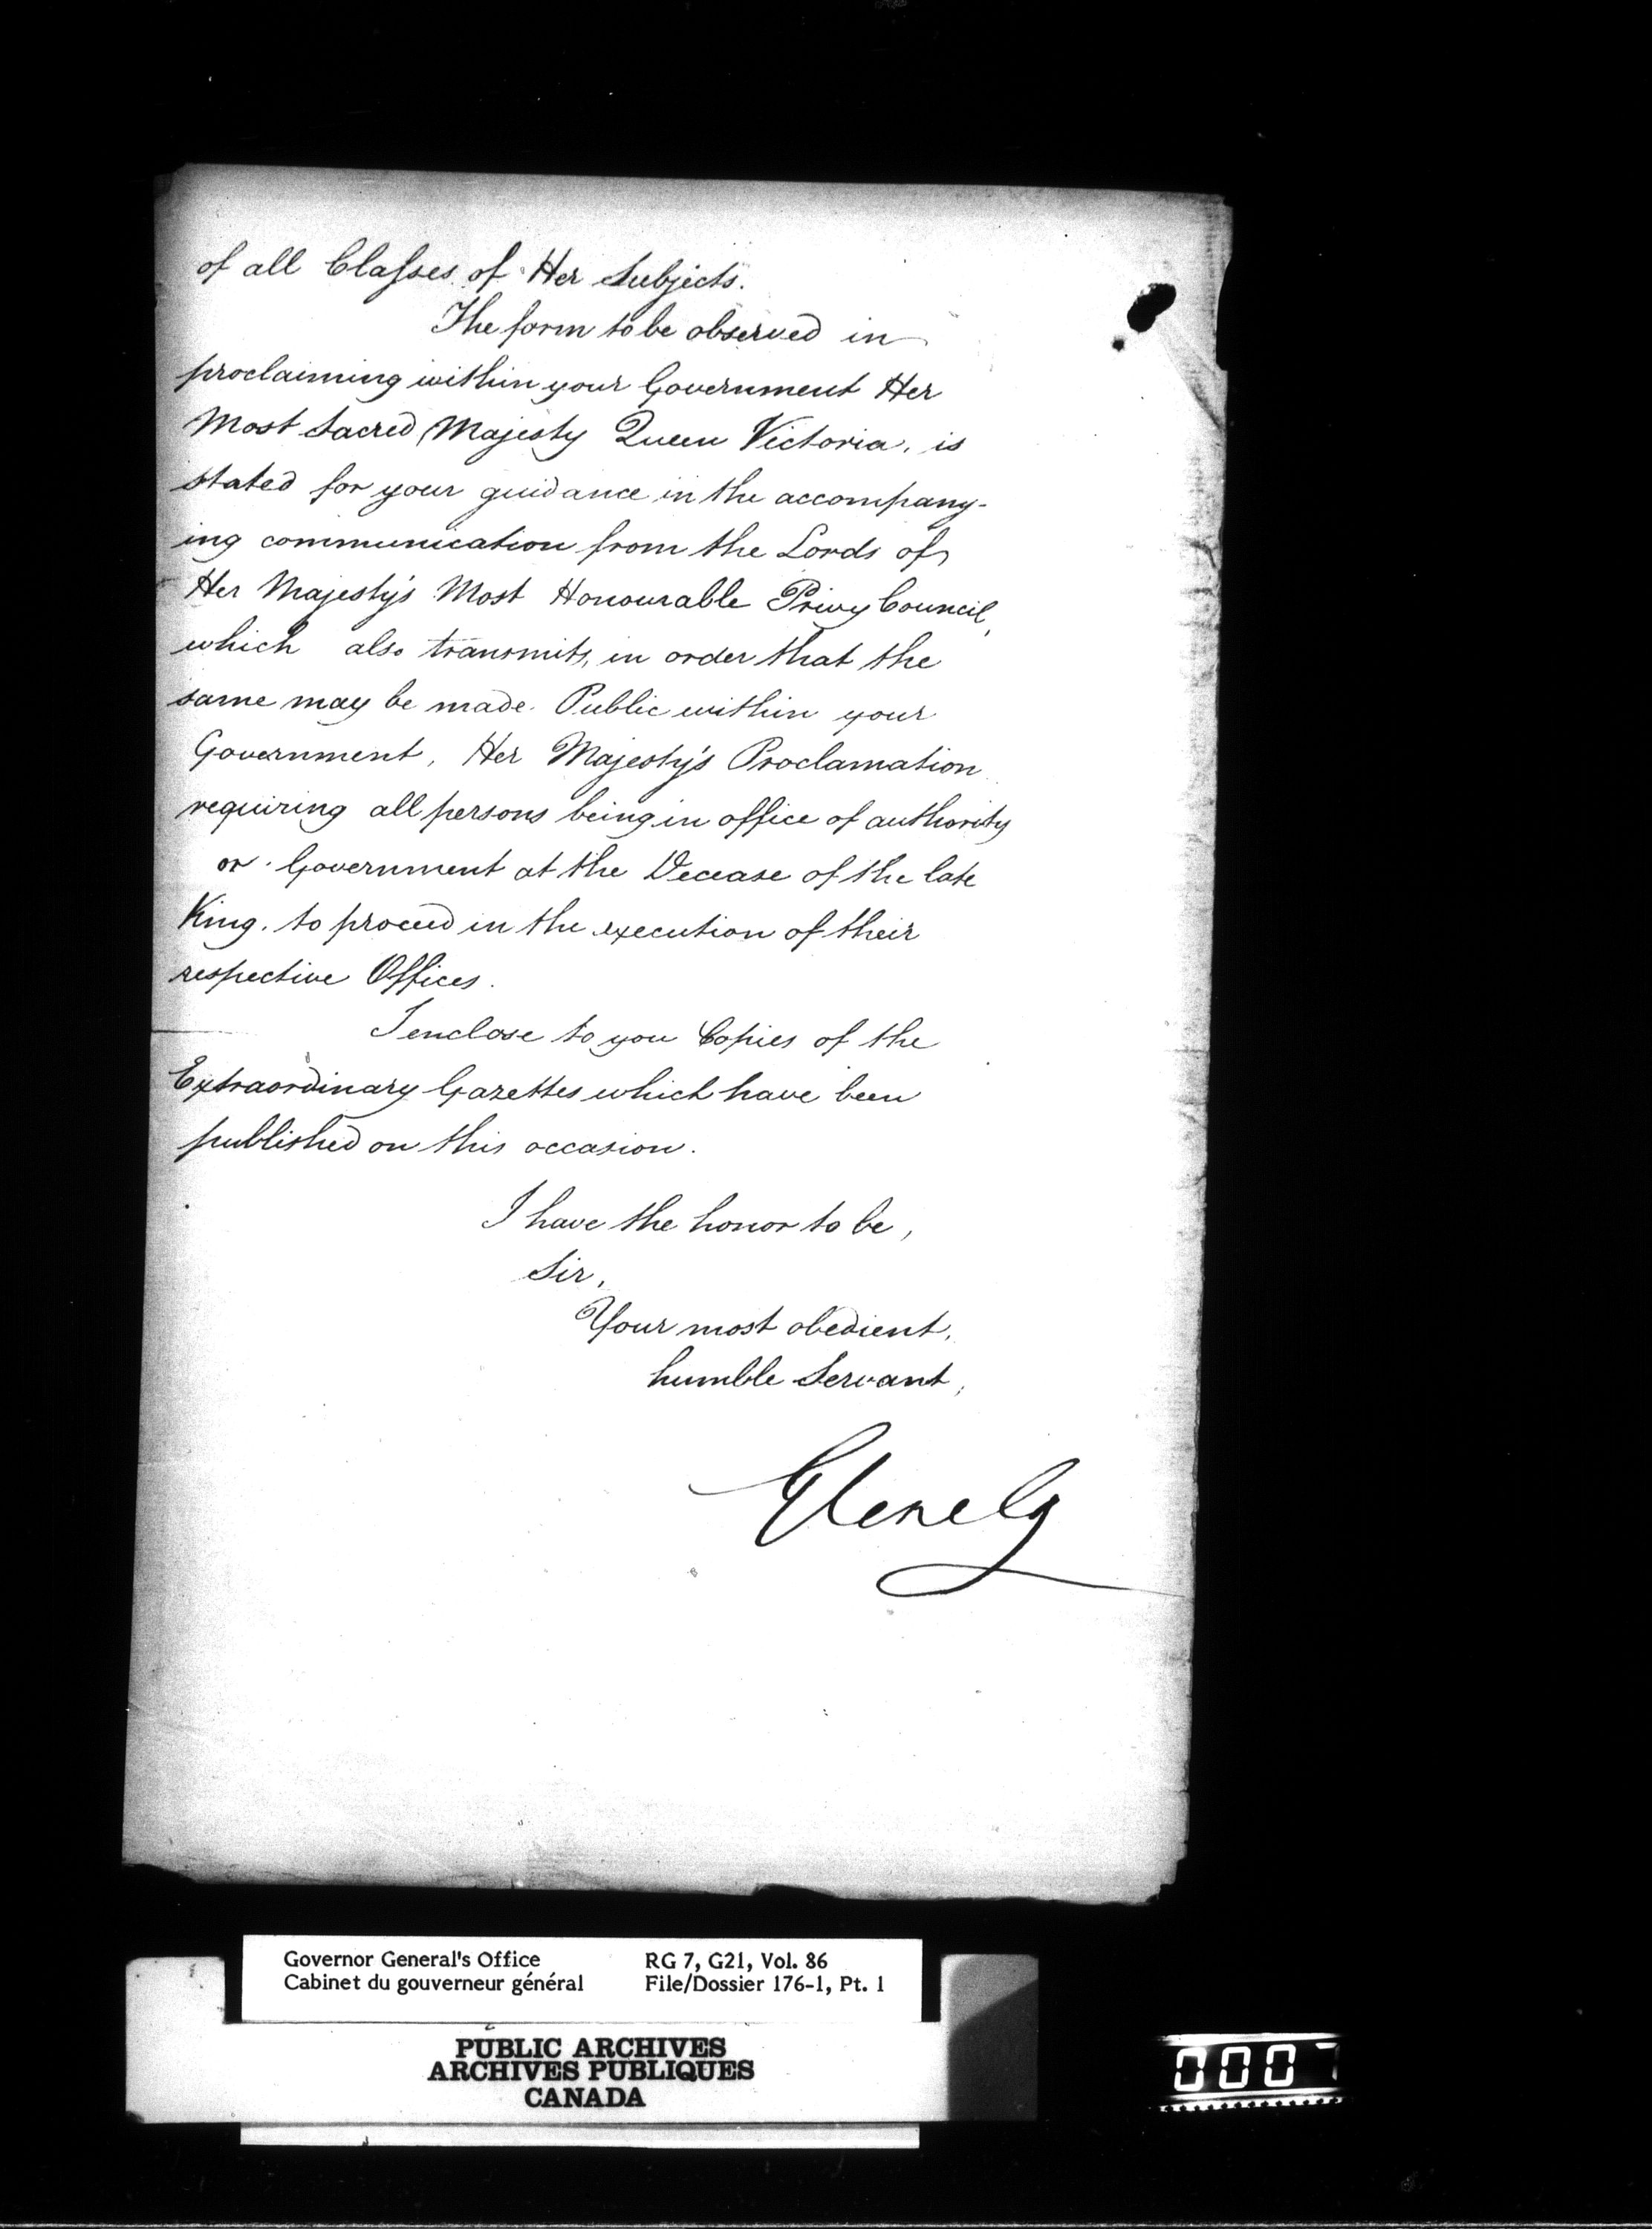 of all Classes of Her Subjects.
The form to be observed in
proclaiming within your Government Her
Most Sacred Majesty Queen Victoria, is
stated for your guidance in the accompany-
ing communication from the Lords of
Her Majesty's Most Honourable Privy Council,
which also transmits, in order that the
same may be made Public within your
Government, Her Majesty's Proclamation
requiring all persons being in office of authority
or Government at the Decease of the late
King, to proceed in the execution of their
respective Offices.
I enclose to you Copies of the
Extraordinary Gazettes which have been
published on this occasion.
I have the honor to be,
Sir,
Your most obedient,
humble Servant,
Glenelg
Governor General's Office RG 7, G21, Vol. 86
Cabinet du gouverneur général File/Dossier 176-1, Pt. 1
PUBLIC ARCHIVES
ARCHIVES PUBLIQUES
CANADA
0007